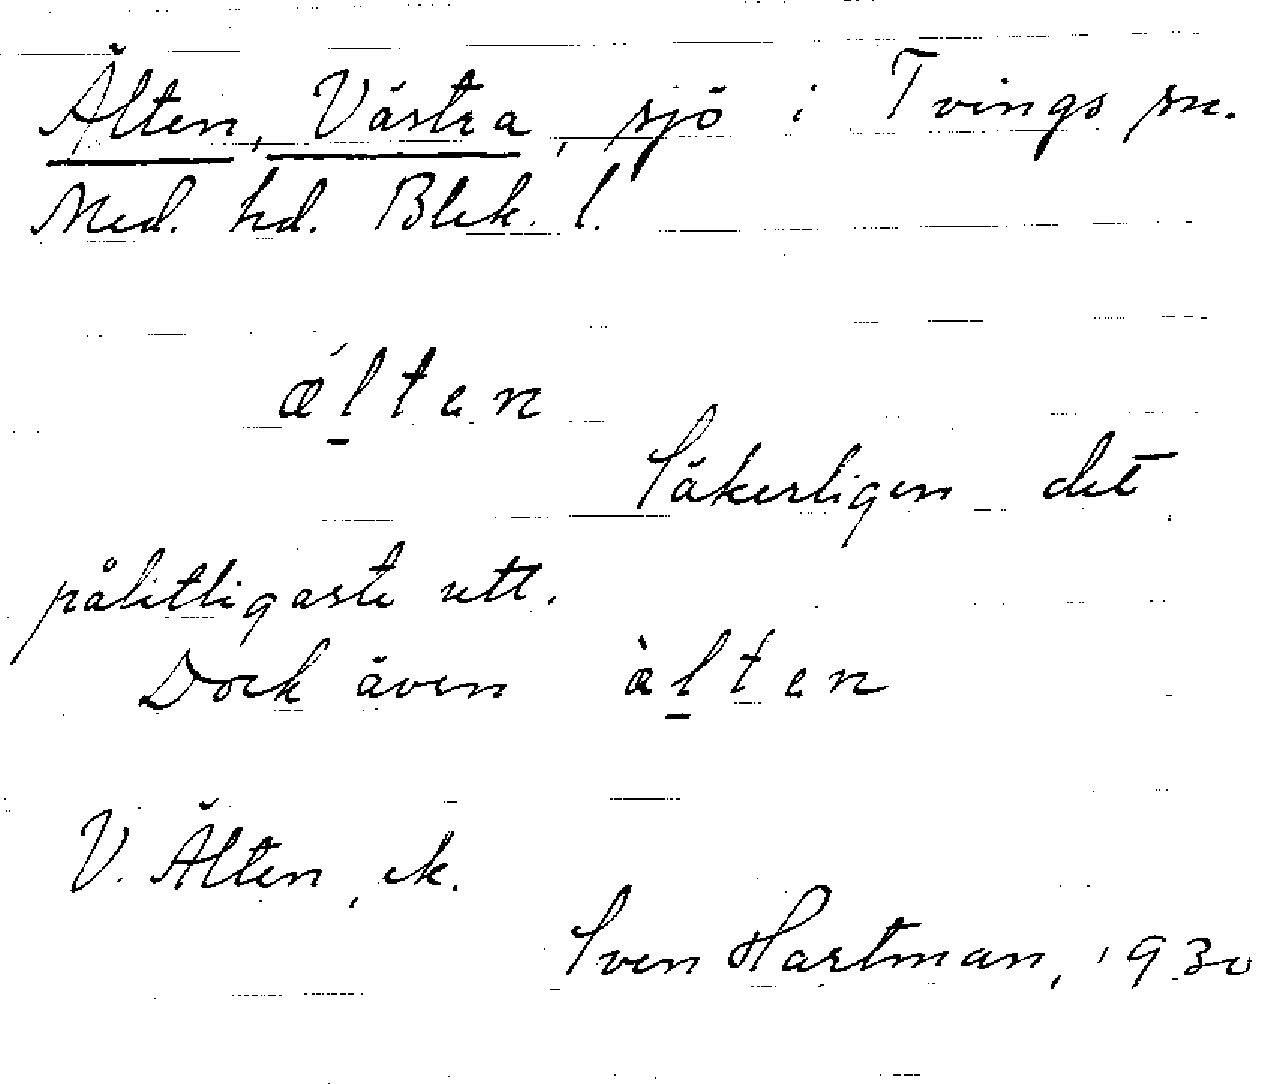 Älten, Västra, sjö i Tvings sn.
Med. hd. Blek. l.
ǽl̠ten
Säkerligen det
pålitligaste utt.
Dock även àl̠ten
V. Älten, ek.
Sven Hartman, 1930